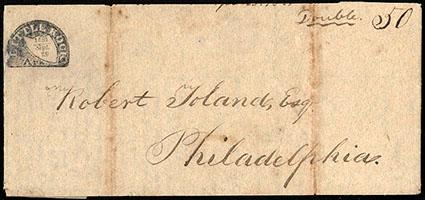 Double. 50
LITTLE ROCK
Ark
Robert Toland, Esq.
Philadelphia.